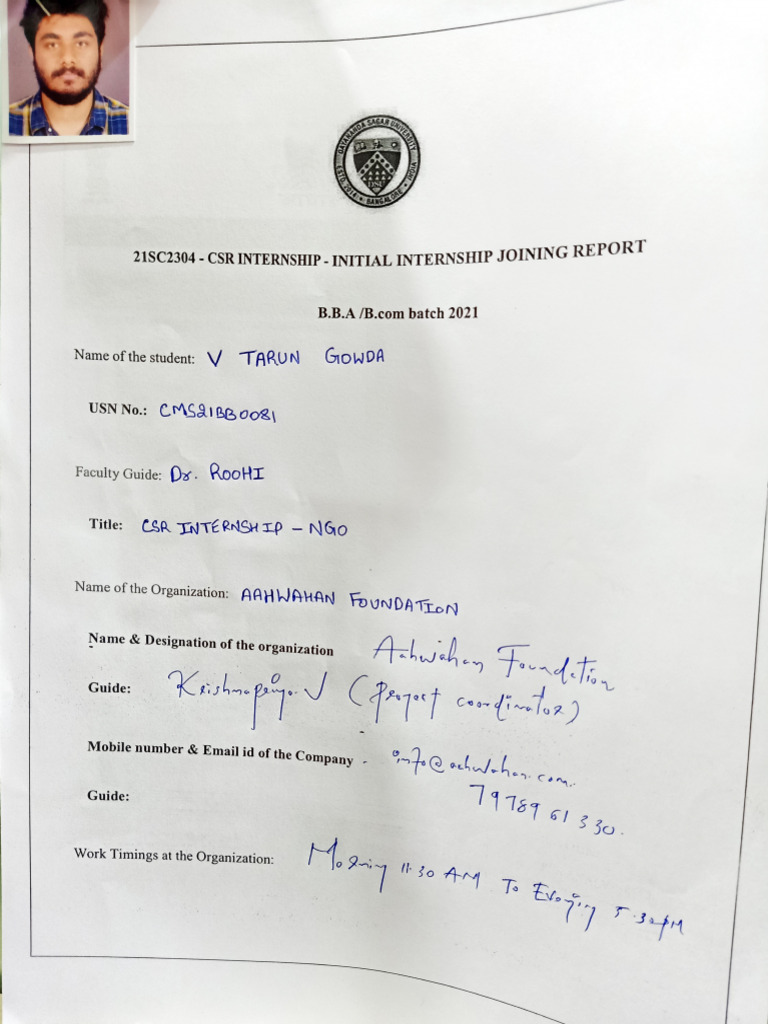 DAYANANDA SAGAR UNIVERSITY
ESTD. 2014 BANGALORE
21SC2304 - CSR INTERNSHIP - INITIAL INTERNSHIP JOINING REPORT
B.B.A /B.com batch 2021
Name of the student: V TARUN GOWDA
USN No.: CMS21BB0081
Faculty Guide: Dr. ROOHI
Title: CSR INTERNSHIP - NGO
Name of the Organization: AAHWAHAN FOUNDATION
Name & Designation of the organization Aahwahan Foundation
Guide: Krishnapriya.V (Project coordinator)
Mobile number & Email id of the Company - info@aahwahan.com.
Guide: 7978961330.
Work Timings at the Organization: Morning 11.30 AM To Evening 5.30PM